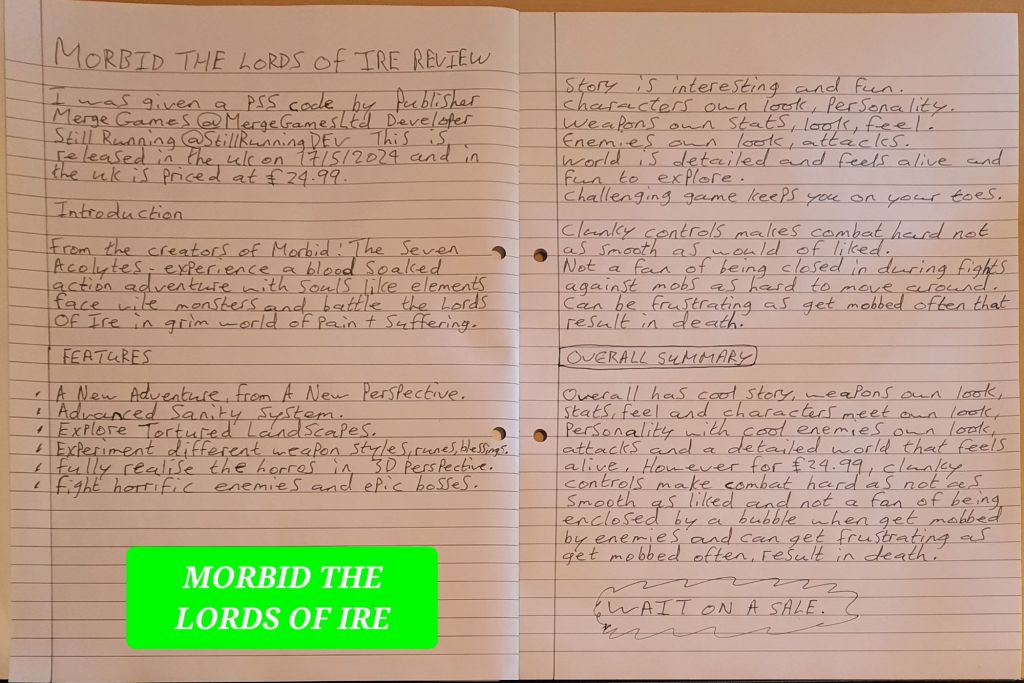 MORBID THE LORDS OF IRE REVIEW
I was given a PS5 code by Publisher
Merge Games @MergeGamesLtd Developer
Still Running @StillRunningDEV This is
released in the uk on 17/5/2024 and in
the uk is priced at £24.99.
Introduction
From the creators of Morbid: The Seven
Acolytes - experience a blood soaked
action adventure with souls like elements
face vile monsters and battle the Lords
Of Ire in grim world of Pain + Suffering.
FEATURES
A New Adventure, from A New Perspective.
Advanced Sanity System.
Explore Tortured Landscapes.
Experiment different weapon styles, runes, blessings.
Fully realise the horros in 3D Perspective.
Fight horrific enemies and epic bosses.
MORBID THE
LORDS OF IRE
Story is interesting and fun.
Characters own look, Personality.
Weapons own stats, look, feel.
Enemies own look, attacks.
World is detailed and feels alive and
fun to explore.
Challenging game keeps you on your toes.
Clunky controls makes combat hard not
as smooth as would of liked.
Not a fan of being closed in during fights
against mobs as hard to move around.
Can be frustrating as get mobbed often that
result in death.
OVERALL SUMMARY
Overall has cool story, weapons own look,
stats, feel and characters meet own look,
Personality with cool enemies own look,
attacks and a detailed world that feels
alive. However for £24.99, clunky
controls make combat hard as not as
smooth as liked and not a fan of being
enclosed by a bubble when get mobbed
by enemies and can get frustrating as
get mobbed often, result in death.
WAIT ON A SALE.